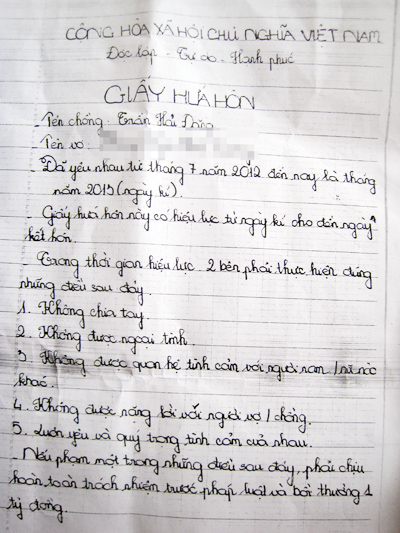 CỘNG HÒA XÃ HỘI CHỦ NGHĨA VIỆT NAM
Độc lập - Tự do - Hạnh phúc
GIẤY HỨA HÔN
- Tên chồng: Trần Hải Đăng
Tên vợ:
- Đã yêu nhau từ tháng 7 năm 2012 đến nay là tháng
năm 2013 (ngày kí).
- Giấy hứa hôn này có hiệu lực từ ngày kí cho đến ngày
kết hôn.
Trong thời gian hiệu lực, 2 bên phải thực hiện đúng
những điều sau đây.
1. Không chia tay.
2. Không được ngoại tình.
3. Không được quan hệ tình cảm với người nam / nữ nào
khác.
4. Không được nặng lời với người vợ / chồng.
5. Luôn yêu và quý trọng tình cảm của nhau.
Nếu phạm một trong những điều sau đây, phải chịu
hoàn toàn trách nhiệm trước pháp luật và bồi thường 1
tỷ đồng.